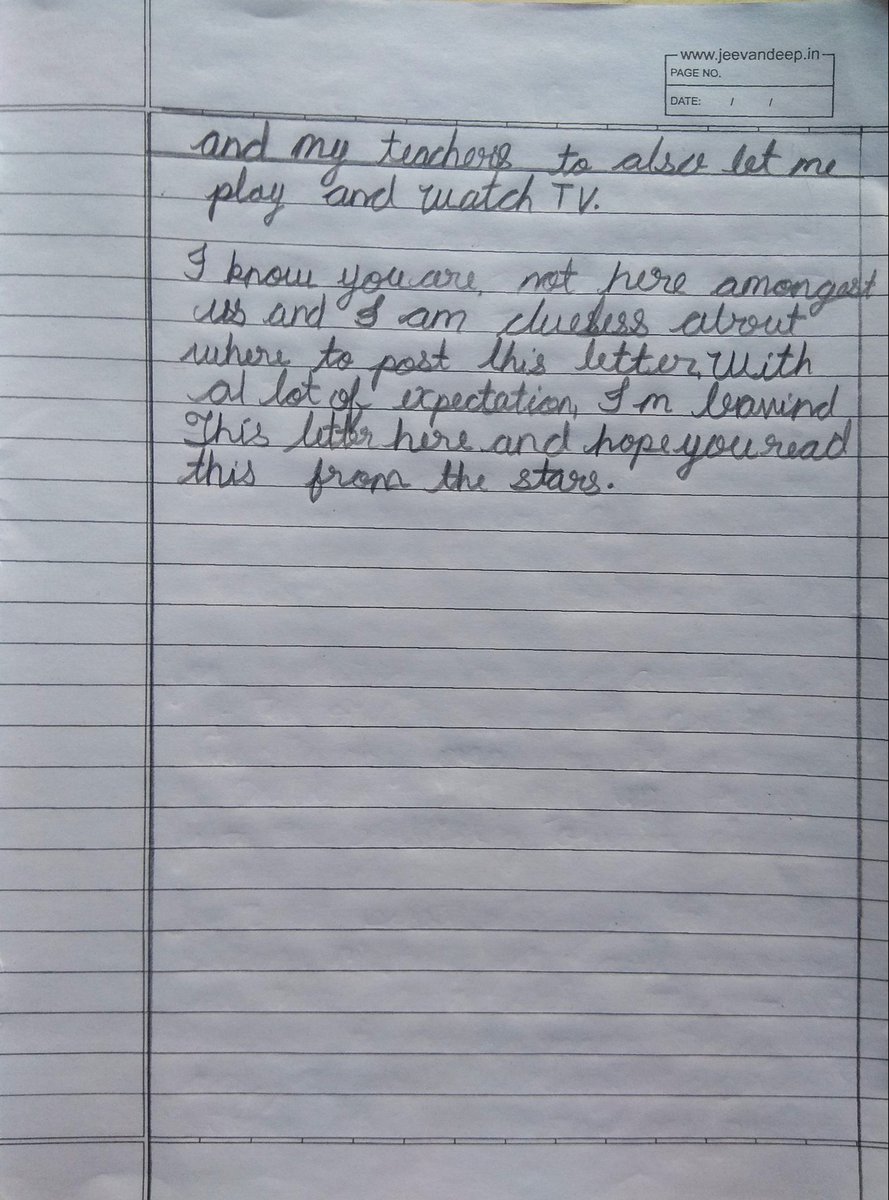 www.jeevandeep.in
PAGE NO.
DATE: / /
and my teachers to also let me
play and watch TV.
I know you are, not here amongest
us and I am clueless about
where to post this letter, With
al lot of expectation, I m leavind
This letter here and hope you read
this from the stars.